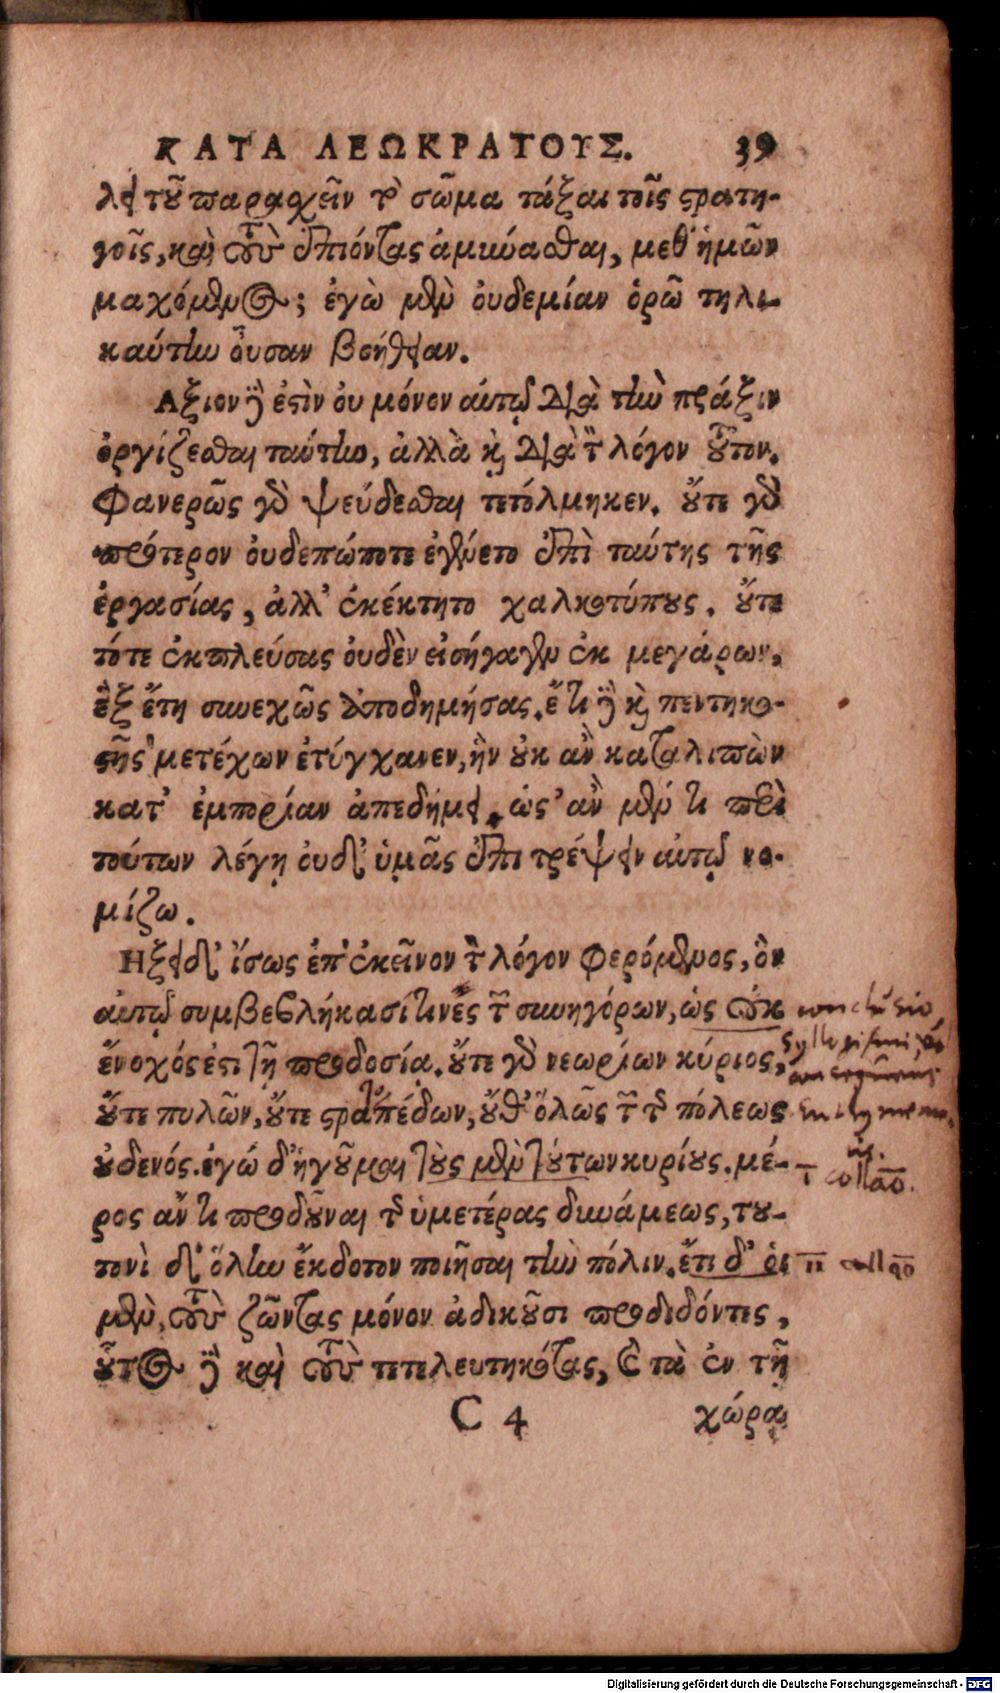 ΚΑΤΑ ΛΕΩΚΡΑΤΟΥΣ. 39
λει τοῦ παραχεῖν τὸ σῶμα τάξαι τοῖς στρατη-
γοῖς, καὶ τοὺς ἐπιόντας ἀμύνασθαι, μεθ' ἡμῶν
μαχόμενος; ἐγὼ μὲν οὐδεμίαν ὁρῶ τηλι-
καύτην οὖσαν βοήθειαν.
Αξιον δὲ ἐστὶν οὐ μόνον αὐτῷ διὰ τὴν πρᾶξιν
ὀργίζεσθαι ταύτην, ἀλλὰ καὶ διὰ τὸν λόγον τοῦτον.
Φανερῶς γὰρ ψεύδεσθαι τετόλμηκεν. οὔτε γὰρ
πρότερον οὐδεπώποτε ἐγένετο ἐπὶ ταύτης τῆς
ἐργασίας, ἀλλ' ἐκέκτητο χαλκοτύπους. οὔτε
τότε ἐκπλεύσας οὐδὲν εἰσήγαγεν ἐκ μεγάρων,
ἓξ ἔτη συνεχῶς ἀποδημήσας. ἔτι δὲ καὶ πεντηκο-
στῆς μετέχων ἐτύγχανεν, ἣν οὐκ ἂν καταλιπὼν
κατ' ἐμπορίαν ἀπεδήμει. ὡς' ἂν μέν τι περὶ
τούτων λέγῃ οὐδ' ὑμᾶς ἐπιτρέψειν αὐτῷ νο-
μίζω.
Ηξει δ' ἴσως ἐπ' ἐκεῖνον τὸν λόγον φερόμενος, ὃν
αὐτῷ συμβεβλήκασί τινὲς τῶν συνηγόρων, ὡς οὐκ
ἔνοχός ἐστι τῇ προδοσίᾳ. οὔτε γὰρ νεωρίων κύριος,
οὔτε πυλῶν, οὔτε στρατοπέδων, οὔθ' ὅλως τῶν τῆς πόλεως
οὐδενός. ἐγώ δ' ἡγοῦμαι τοὺς μὲν τούτων κυρίους. μέ-
ρος ἄν τι προδοῦναι τῆς ὑμετέρας δυνάμεως, του-
τονὶ δ' ὅλην ἔκδοτον ποιῆσαι τὴν πόλιν. ἔτι δ' οἱ
μὲν, τοὺς ζῶντας μόνον ἀδικοῦσι προδιδόντες,
οὗτος δὲ καὶ τοὺς τετελευτηκότας, καὶ τὰ ἐν τῇ
C 4 χώρᾳ
Digitalisierung gefördert durch die Deutsche Forschungsgemeinschaft - DFG